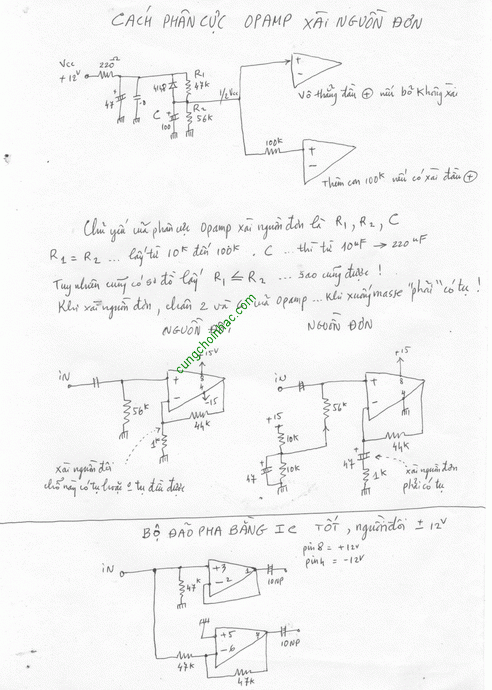 CÁCH PHÂN CỰC OPAMP XÀI NGUỒN ĐƠN
Vcc
+12V
220Ω
47
.1
4148
R1
47K
R2
56K
C
100
1/2 Vcc
+
-
Vô thẳng đầu + nếu bỏ không xài
100K
+
-
Thêm con 100K nếu có xài đầu +
Chủ yếu của phân cực Opamp xài nguồn đơn là R1, R2, C
R1 = R2 ... lấy từ 10K đến 100K. C ... thì từ 10uF → 220uF
Tuy nhiên cũng có sơ đồ lấy R1 ≤ R2 ... sao cũng được!
Khi xài nguồn đơn, chân 2 và 6 của opamp ... khi xuống masse "phải" có tụ!
NGUỒN ĐÔI
NGUỒN ĐƠN
cungchoinhac.com
iN
56K
+
-
+15V
8
4
-15
1K
44K
xài nguồn đôi
chỗ này có tụ hoặc 0 tụ đều được
iN
56K
+15
10K
10K
47
+
-
+15
8
4
44K
47
1K
xài nguồn đơn
phải có tụ
BỘ ĐẢO PHA BẰNG IC TỐT, nguồn đôi ± 12V
pin 8 = +12V
pin 4 = -12V
iN
47K
+3
-2
1
10NP
+5
-6
7
10NP
47K
47K